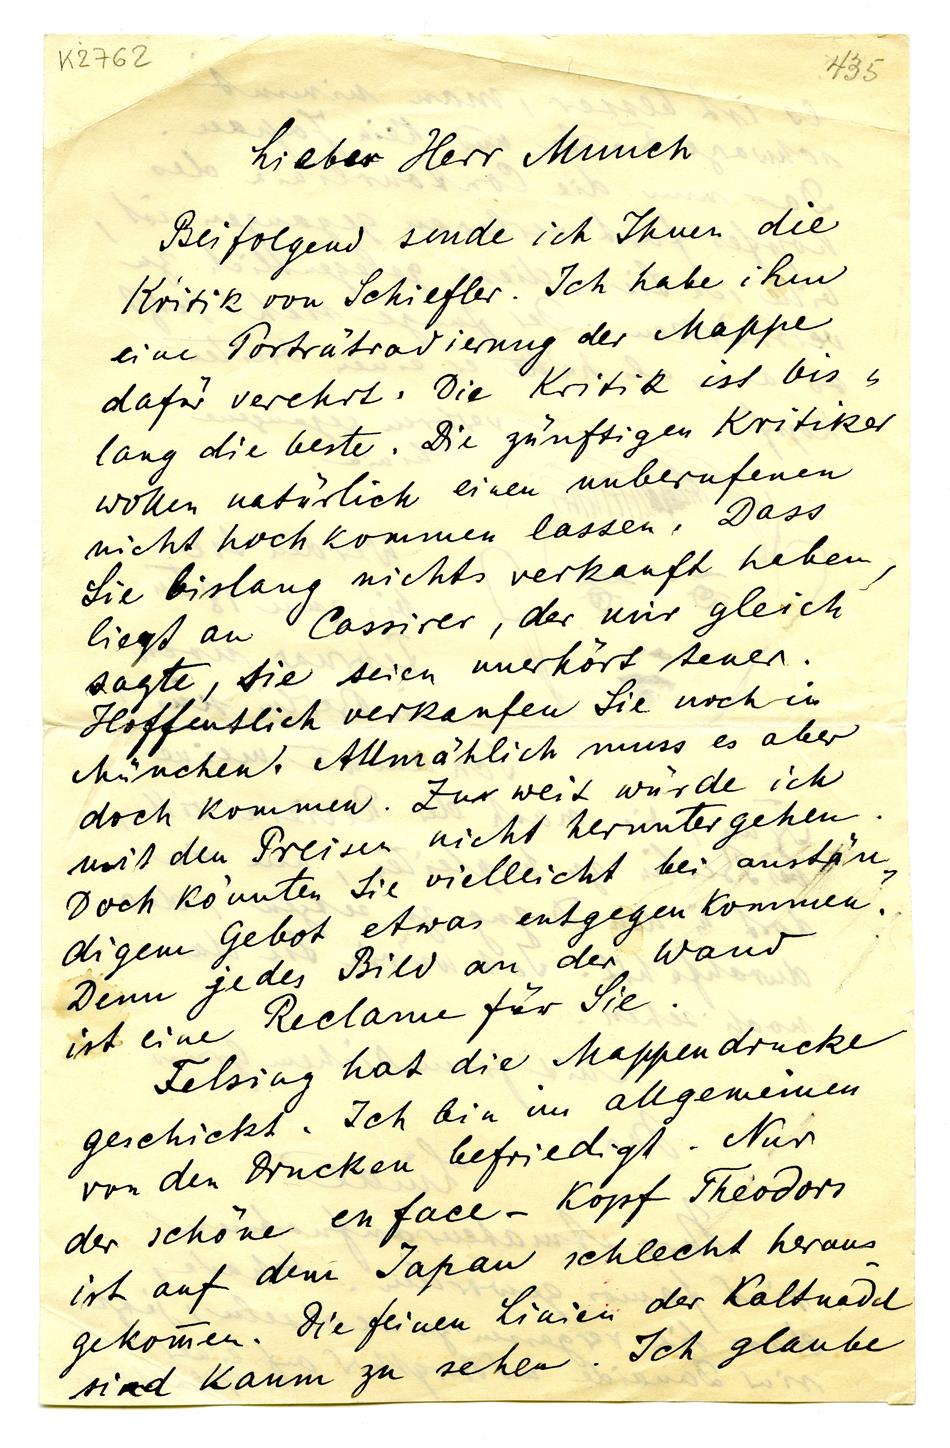 K2762
435
Lieber Herr Munch
Beifolgend sende ich Ihnen die
Kritik von Schiefler. Ich habe ihm
eine Porträtradierung der Mappe
dafür verehrt. Die Kritik ist bis„
lang die beste. Die zünftigen Kritiker
wollen natürlich einen unberufenen
nicht hoch kommen lassen. Dass
Sie bislang nichts verkauft haben,
liegt an Cassirer, der mir gleich
sagte, sie seien unerhört teuer.
Hoffentlich verkaufen Sie noch in
München. Allmählich muss es aber
doch kommen. Zu weit würde ich
mit den Preisen nicht heruntergehen.
Doch könnten Sie vielleicht bei anstän„
digem Gebot etwas entgegen kommen.
Denn jedes Bild an der Wand
ist eine Reclame für Sie.
Felsing hat die Mappendrucke
geschickt. Ich bin im allgemeinen
von den Drucken befriedigt. Nur
der schöne en face - Kopf Theodors
ist auf dem Japan schlecht heraus
gekom̄en. Die feinen Linien der Kaltnadel
sind kaum zu sehen. Ich glaube